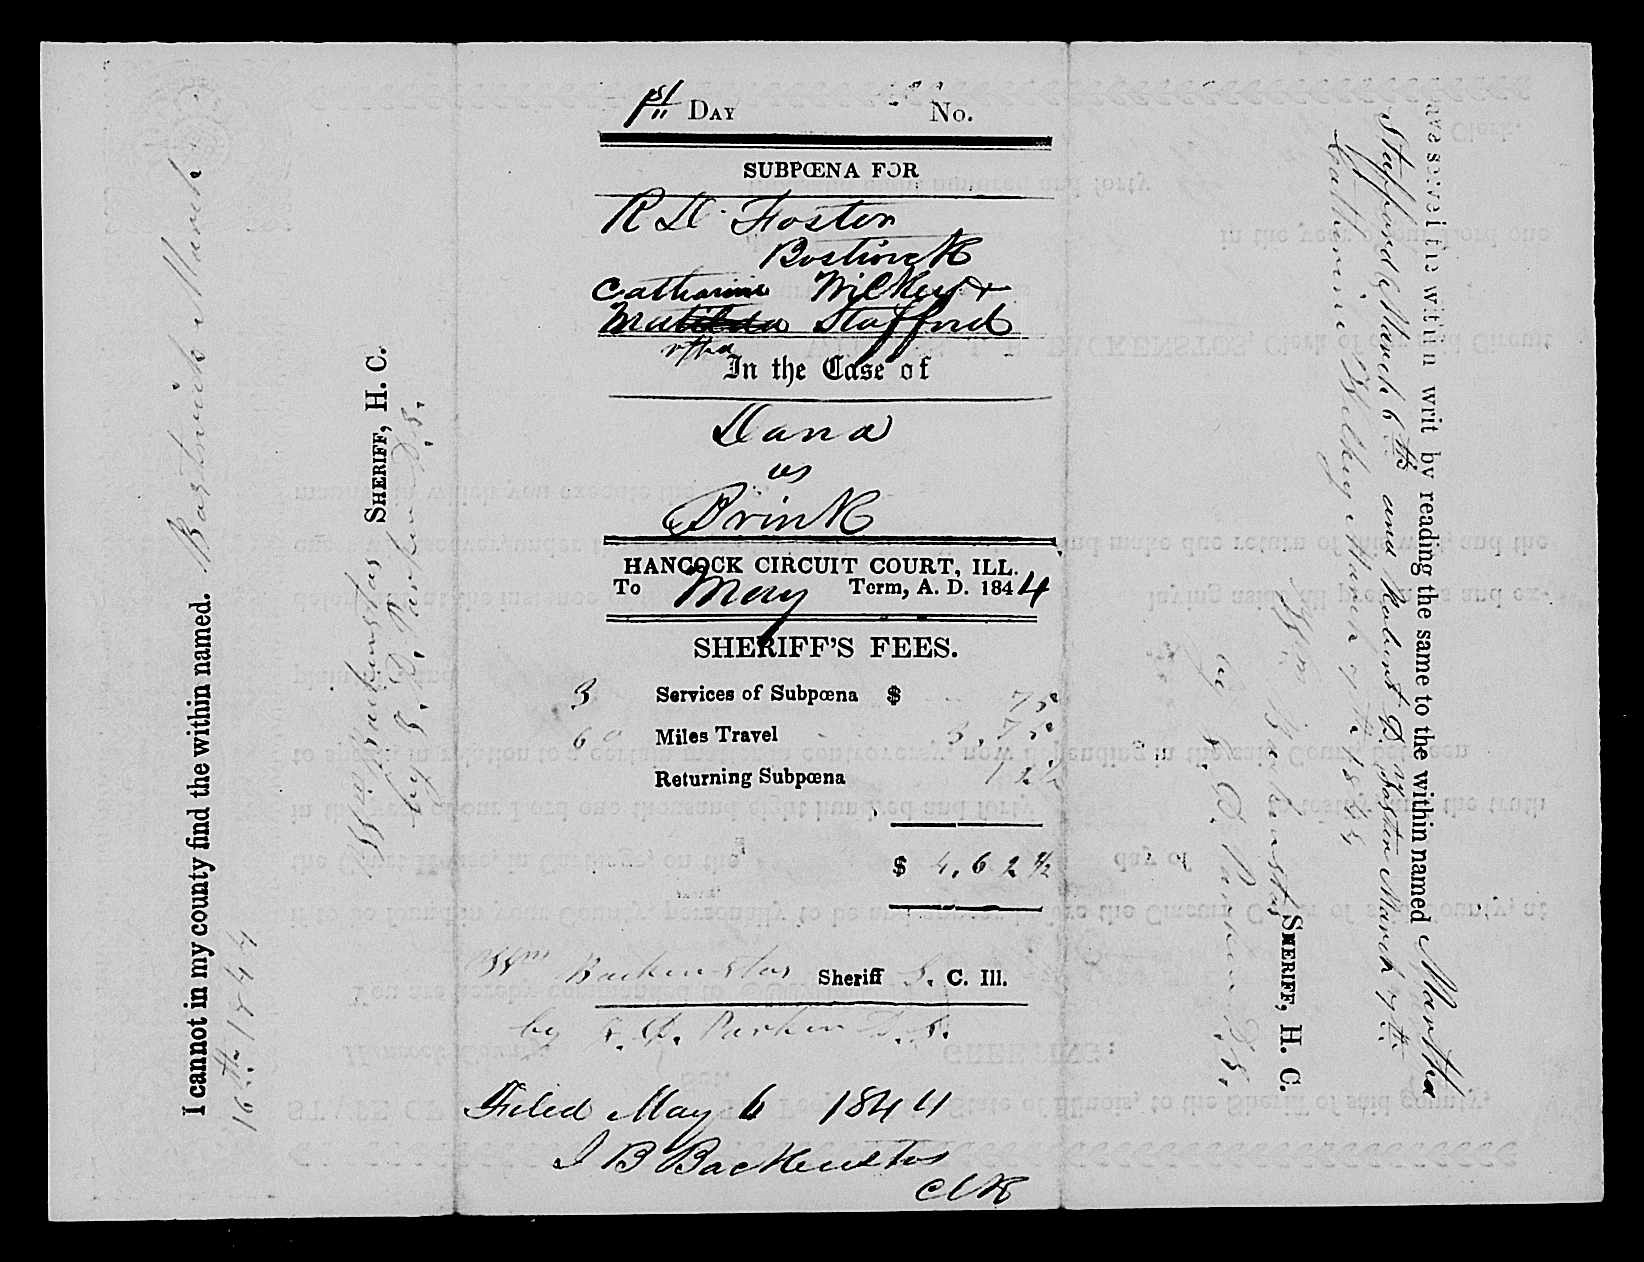 1st Day No.
SUBPŒNA FOR
R D. Foster
Bostwick
Catharine Wilkey &
Matilda Stafford
rtha
In the Case of
Dana
vs
Brink
HANCOCK CIRCUIT COURT, ILL.
To May Term, A. D. 1844
SHERIFF'S FEES.
3 Services of Subpœna $ 75
60 Miles Travel 3.75
Returning Subpœna 12½
$ 4,62½
Wm Backenstos Sheriff H. C. Ill.
by S. D. Parker D. S.
Filed May 6 1844
J B Backenstos
Clk
I cannot in my county find the within named. Bostwick March
16th 1844
Wm Backenstos SHERIFF, H. C.
by S. D. Parker D. S.
ave served the within writ by reading the same to the within named Martha
Stafford March 6th and Robert D. Foster March 7th
Catherine Wilkey March 7th 1844
Wm Backenstos SHERIFF, H. C.
by S. D. Parker D. S.